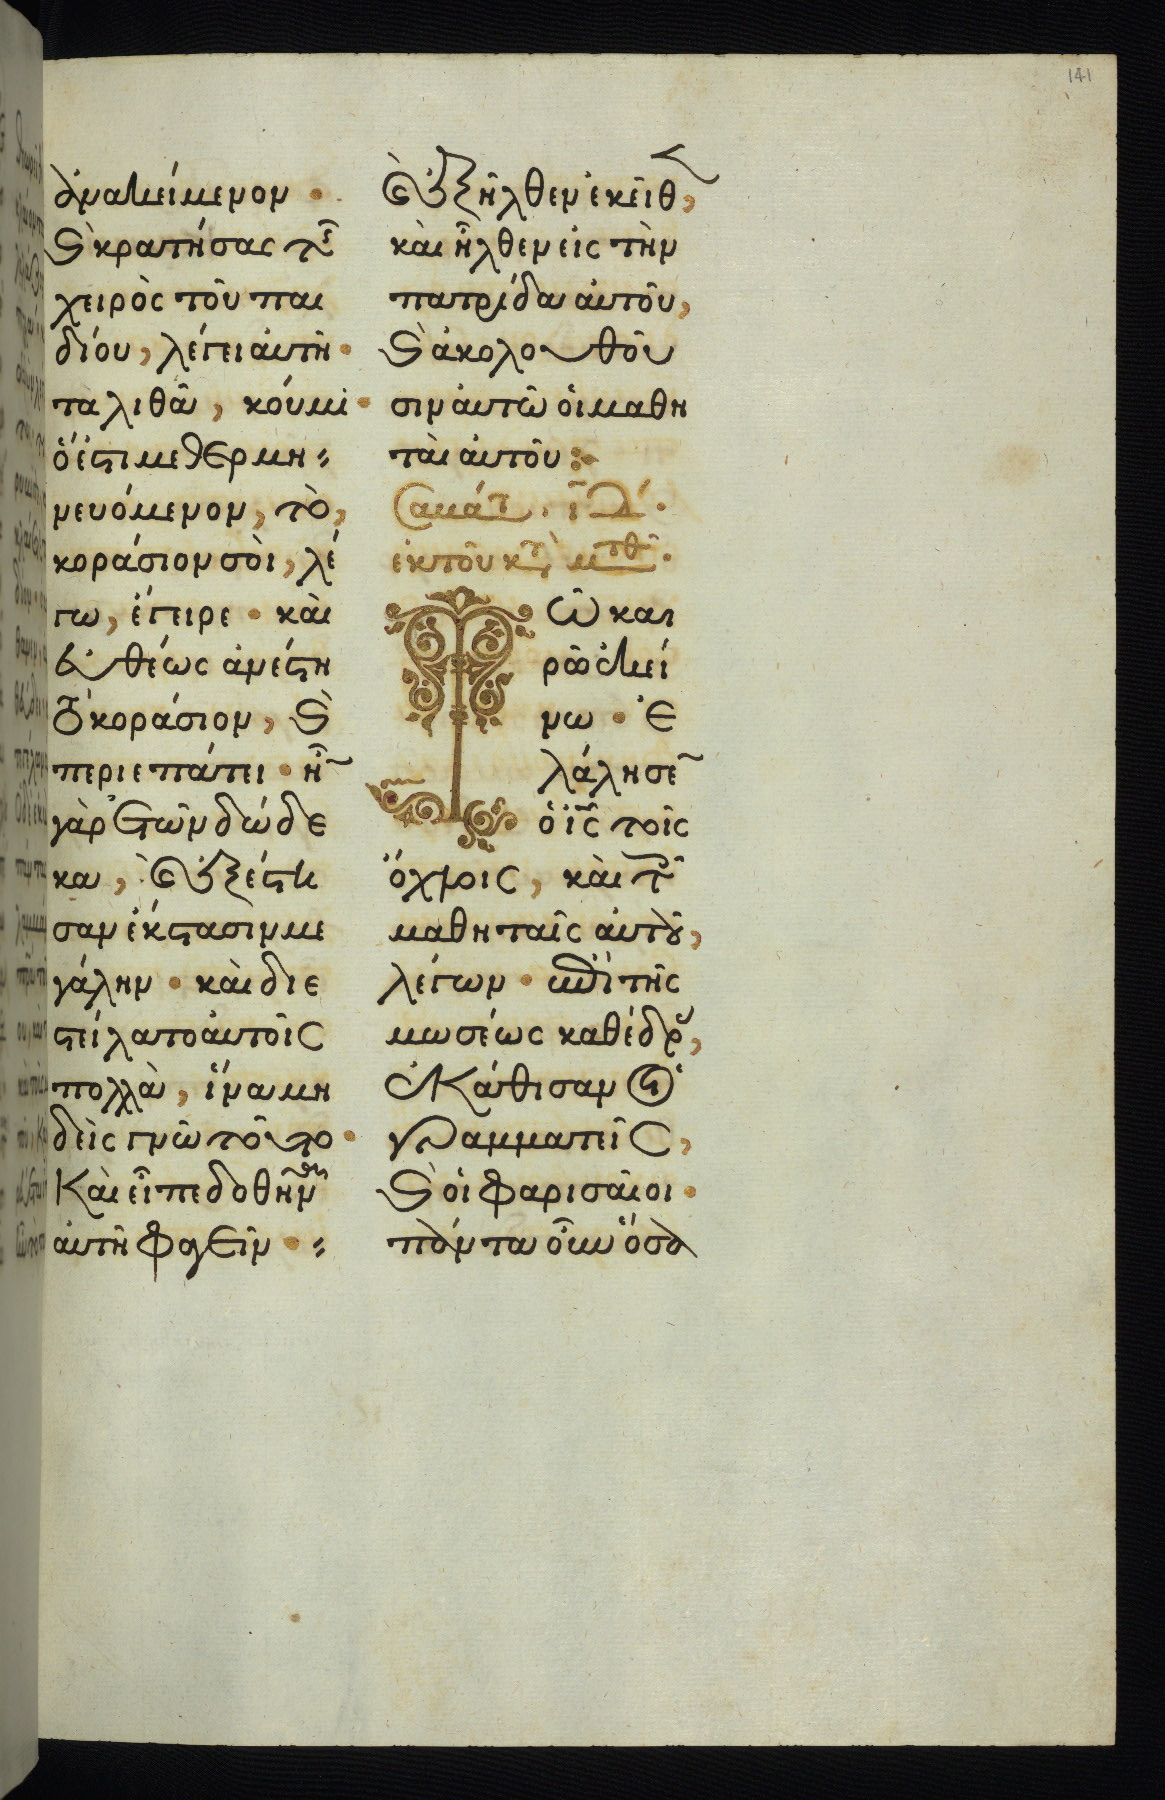 ἀνακείμενον ·
καὶ κρατήσας τῆς
χειρὸς τοῦ παι
δίου, λέγει αὐτῆ ·
ταλιθᾶ, κούμι ·
ὅ ἐστι μεθερμη
νευόμενον, τὸ,
κοράσιον σὸι, λέ
γω, ἔγειρε · καὶ
εὐθέως ἀνέστη
τὸ κοράσιον, καὶ
περιεπάτει · ἦν
γὰρ ἐτῶν δώδε
κα, καὶ ἐξέστη
σαν ἐκστάσιν με
γάλην · καὶ διε
στείλατο αὐτοῖς
πολλὰ, ἵνα μη
δεὶς γνῶ τοῦτο ·
Καὶ εἶπε δοθῆναι
αὐτῆ φαγεῖν ·
καὶ ἐξῆλθεν ἐκεῖθεν,
καὶ ἦλθεν εἰς τὴν
πατρίδα αὐτοῦ,
καὶ ἀκολουθοῦ
σιν αὐτῶ ὁι μαθη
ταὶ αὐτοῦ :
Σαββάτω ιδ ·
ἐκ τοῦ κατὰ ματθ ·
Τῶ και
ρῶ ἐκεί
νω · Ἐ
λάλησεν
ὁ ἰς τοῖς
ὄχλοις, καὶ τοῖς
μαθηταῖς αὐτοῦ,
λέγων · ἐπὶ τῆς
μωσέως καθέδρας,
ἐκάθισαν οἱ
γραμματεῖς,
καὶ ὁι φαρισαῖοι ·
πάντα οὖν ὅσα
141